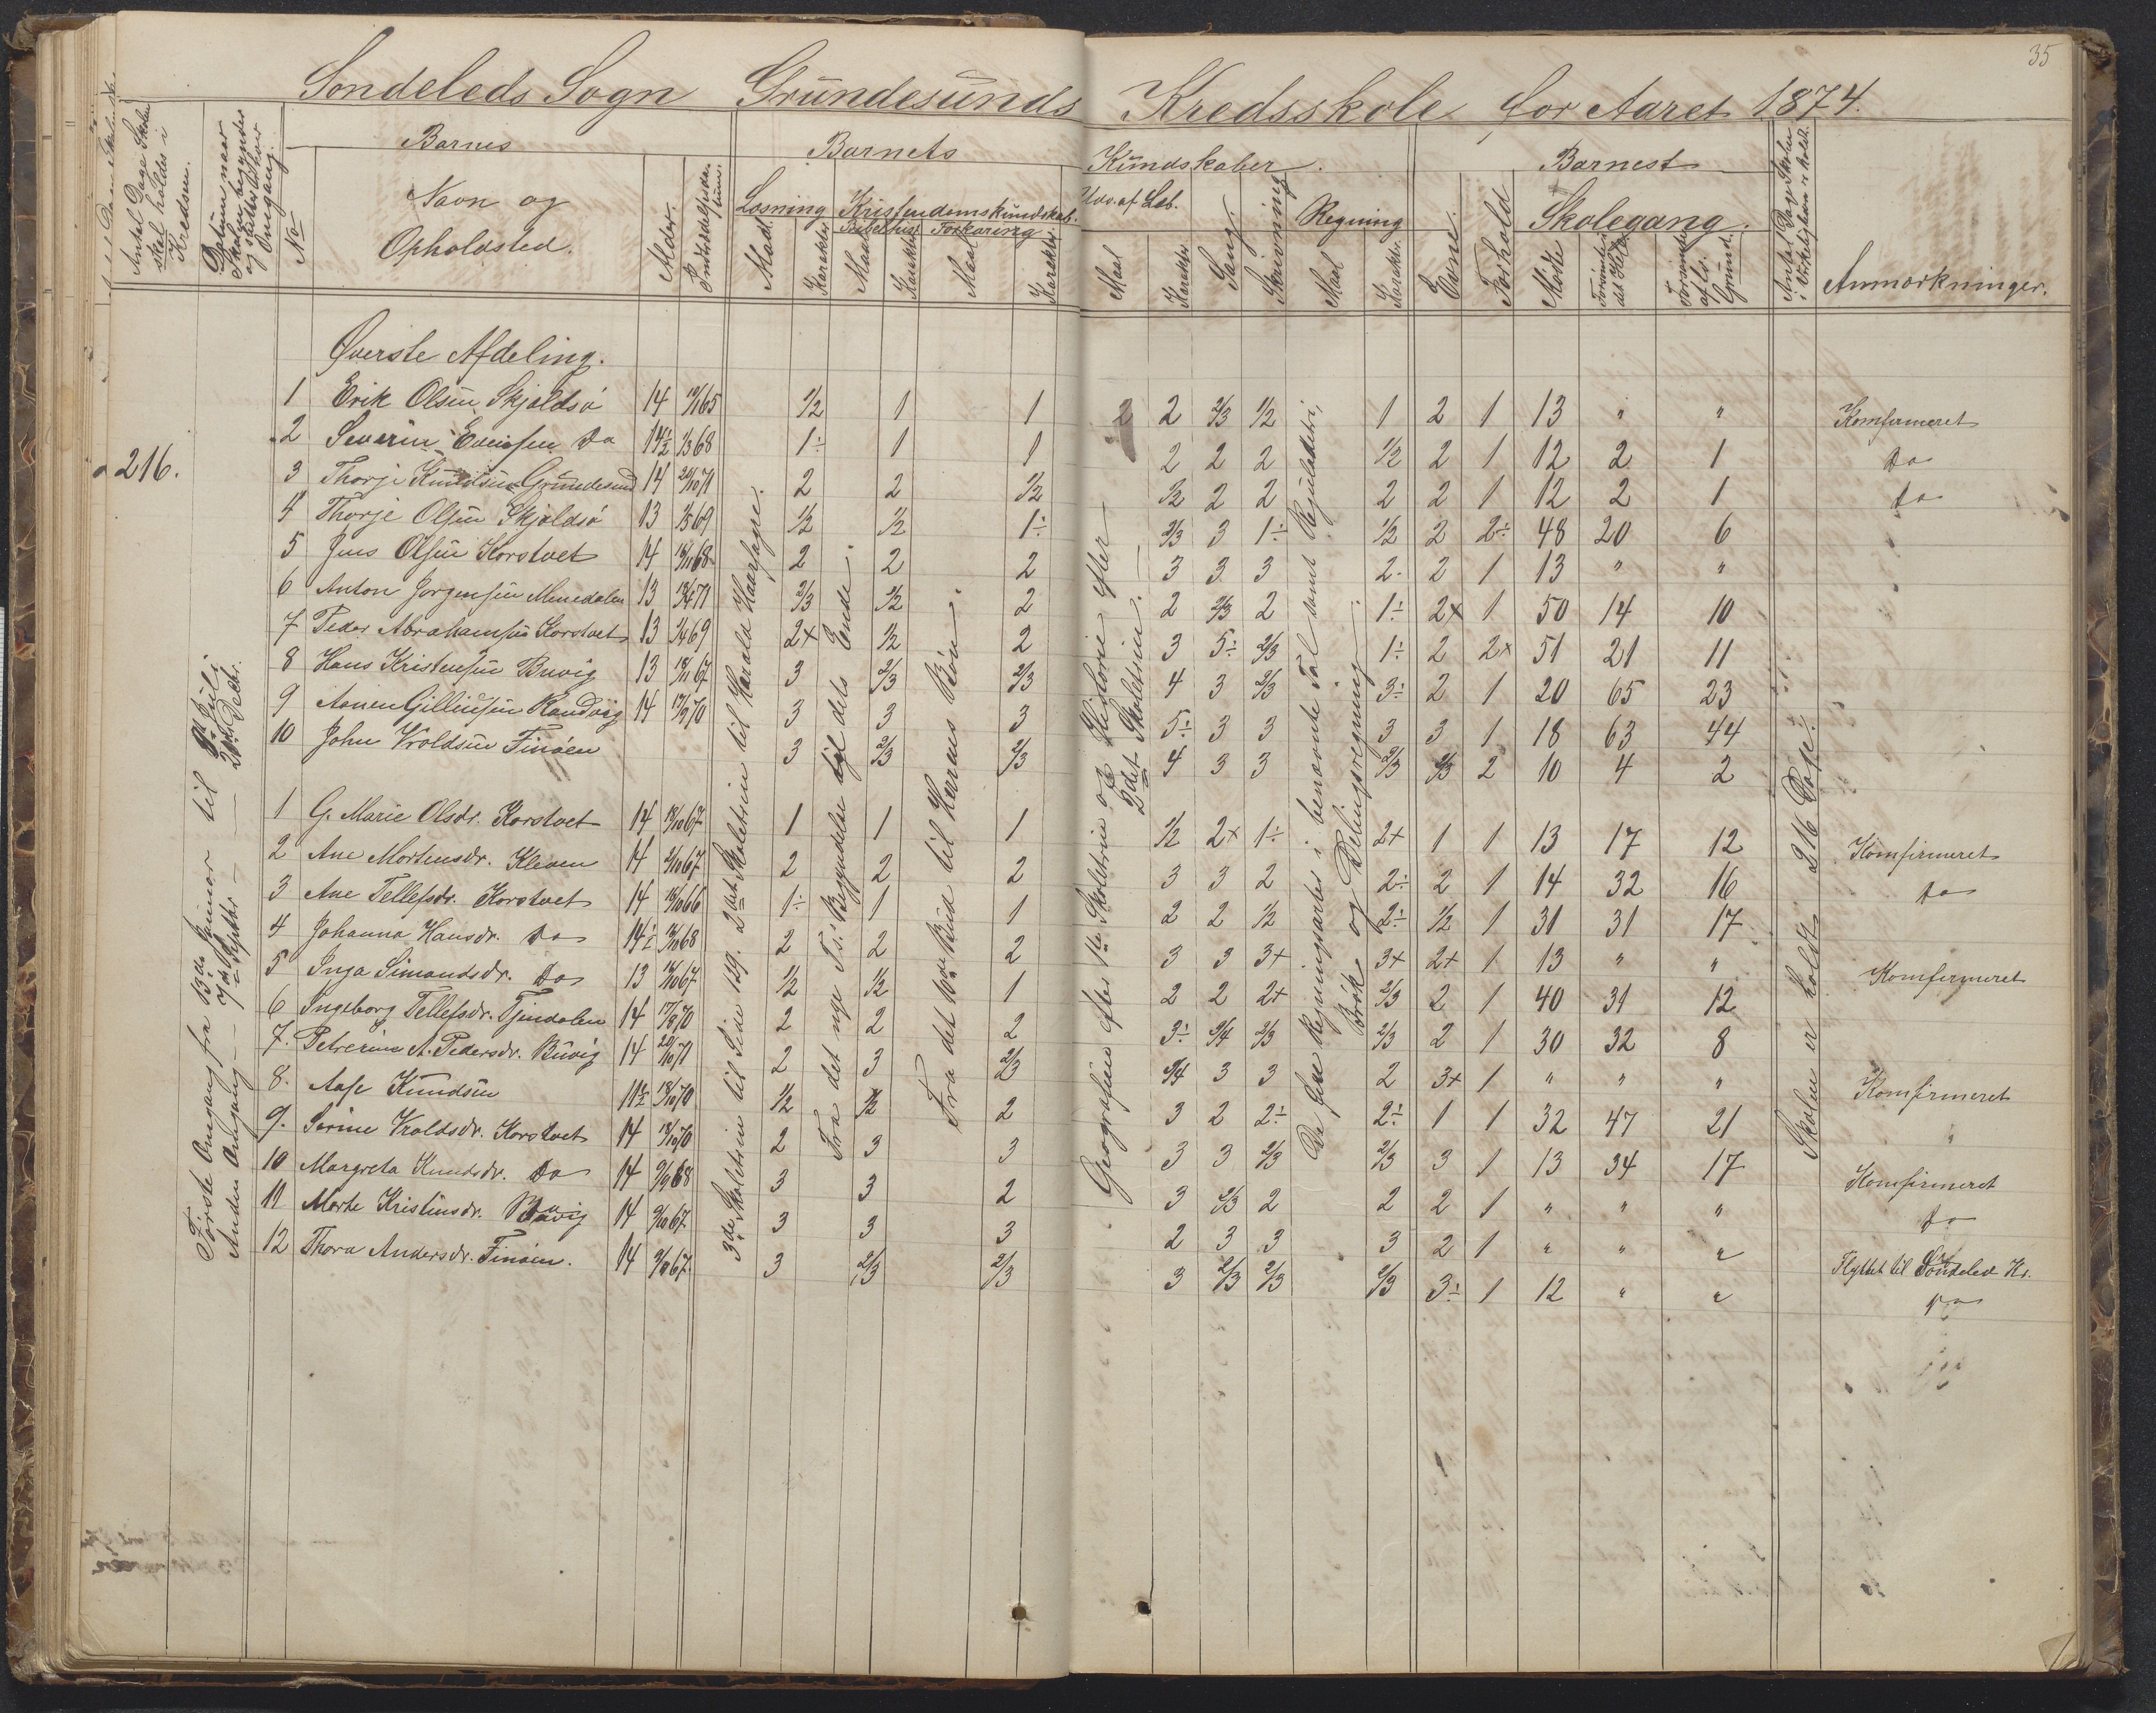 35
Sondeleds Sogn Grundesunds Kredsskole for Aaret 1874.
Antal Dage Skolen skal holdes i Kredsen.
Datum naar Skolen begynder og slutter hver Omgang.
No
Barnes
Navn og Opholdsted.
Alder.
Indtrædelsesdatum.
Barnets Kundskaber.
Læsning
Maal
Karakter.
Kristendomskundskab.
Bibelhist.
Maal
Karakter
Forklaring
Maal
Karakter.
Udv. af Læb.
Maal
Karakter.
Sang.
Skrivning
Regning
Maal
Karakter.
Evne.
Forhold
Barnest
Skolegang.
Mødte
Forsømte det Hele
Forsømte af lov. Grund.
Antal Dage Skolen i Virkeligheden er holdt.
Anmærkninger.
Øverste Afdeling.
1 Erik Olsen Skjoldsø 14 65 1/2 1 1 2 2 2/3 1/2 1 2 1 13 " " Komfirmeret
2 Severin Evensen Do 14½ 68 1÷ 1 1 2 2 2 1/2 2 1 12 2 1 Do
216.
3 Thorje Knudsen Grundesund 14 20/10 71 2 2 1/2 1/2 2 2 2 2 1 12 2 1 Do
4 Thorje Olsen Skjoldsø 13 69 1/2 1/2 1÷ 2/3 3 1÷ 1/2 2 2÷ 48 20 6
5 Jens Olsen Korstvet 14 68 2 2 2 3 3 3 2 2 1 13 " "
6 Anton Jorgensen Minedalen 13 71 2/3 1/2 2 2 2/3 2 1÷ 2+ 1 50 14 10
7 Peder Abrahamsen Korstvet 13 69 2+ 1/2 2 3 5÷ 2/3 1÷ 2 2+ 51 21 11
8 Hans Kristensen Buvig 13 67 3 2/3 2/3 4 3 2/3 3÷ 2 1 20 65 23
9 Aanen Gillussen Randvig 14 70 3 3 3 5÷ 3 3 3 3 1 18 63 44
10 John Vroldsen Finøen 3 2/3 2/3 4 3 3 2/3 2/3 2 10 4 2
1 G. Marie Olsdr. Korstvet 14 67 1 1 1 1/2 2+ 1÷ 2+ 1 1 13 17 12 Komfirmeret
2 Ane Mortensdr. Kleven 14 67 2 2 2 3 3 2 2÷ 2 1 14 32 16 Do
3 Ane Tellefsdr. Korstvet 14 66 1÷ 1 1 2 2 1/2 2÷ 1/2 1 31 31 17
4 Johanna Hansdr. Do 14½ 68 2 2 2 3 3 3+ 3+ 2+ 1 13 " " Komfirmeret
5 Inga Simondsdr. Do 13 67 1/2 1/2 1 2 2 2+ 2/3 2 1 40 31 12
6 Ingeborg Tellefsdr. Tjendalen 14 70 2 2 2 3÷ 3/4 2/3 2/3 2 1 30 32 8
7. Petrerine A. Pedersdr. Buvig 14 20/10 71 2 3 2/3 3/4 3 3 2 3+ 1 " " " Komfirmeret
8. Aase Knudsen 70 1/2 1/2 2 3 2 2÷ 2÷ 1 1 32 47 21
9. Sørine Vroldsdr. Korstvet 14 70 2 3 3 3 3 2/3 2/3 3 1 13 34 17 Komfirmeret
10 Margreta Knudsdr. Do 14 68 3 3 2 3 2/3 2 2 2 1 " " " Do
11 Marte Kristensdr. Buvig 14 67 3 3 3 2 3 3 3 2 1 " " " Flyttet til Søndeled Ks.
12 Thora Andersdr. Finøen. 14 67 3 2/3 2/3 3 2/3 2/3 2/3 3÷ 1 12 " " Do
Første Omgang fra 13de Januar til Juli
Anden Omgang — 7de Septbr. — 20de Decbr.
3de Skoletrin til Side 149. 2det Skoletrin til Harald Haarfagre.
Fra det nye T.s. Begyndelse til dets Ende.
Fra det 10de Bud til Herrens Bøn.
Geografien efter 1ste Skoletrin og Historie efter
2det Skoletrin.
De fire Regningsarter i benævnte Tal samt Reguladetri,
Brøk og Delingsregning.
Skolen er holdt 216 Dage.